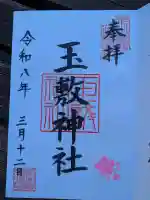 奉拝
玉敷神社
令和八年
三月十二日